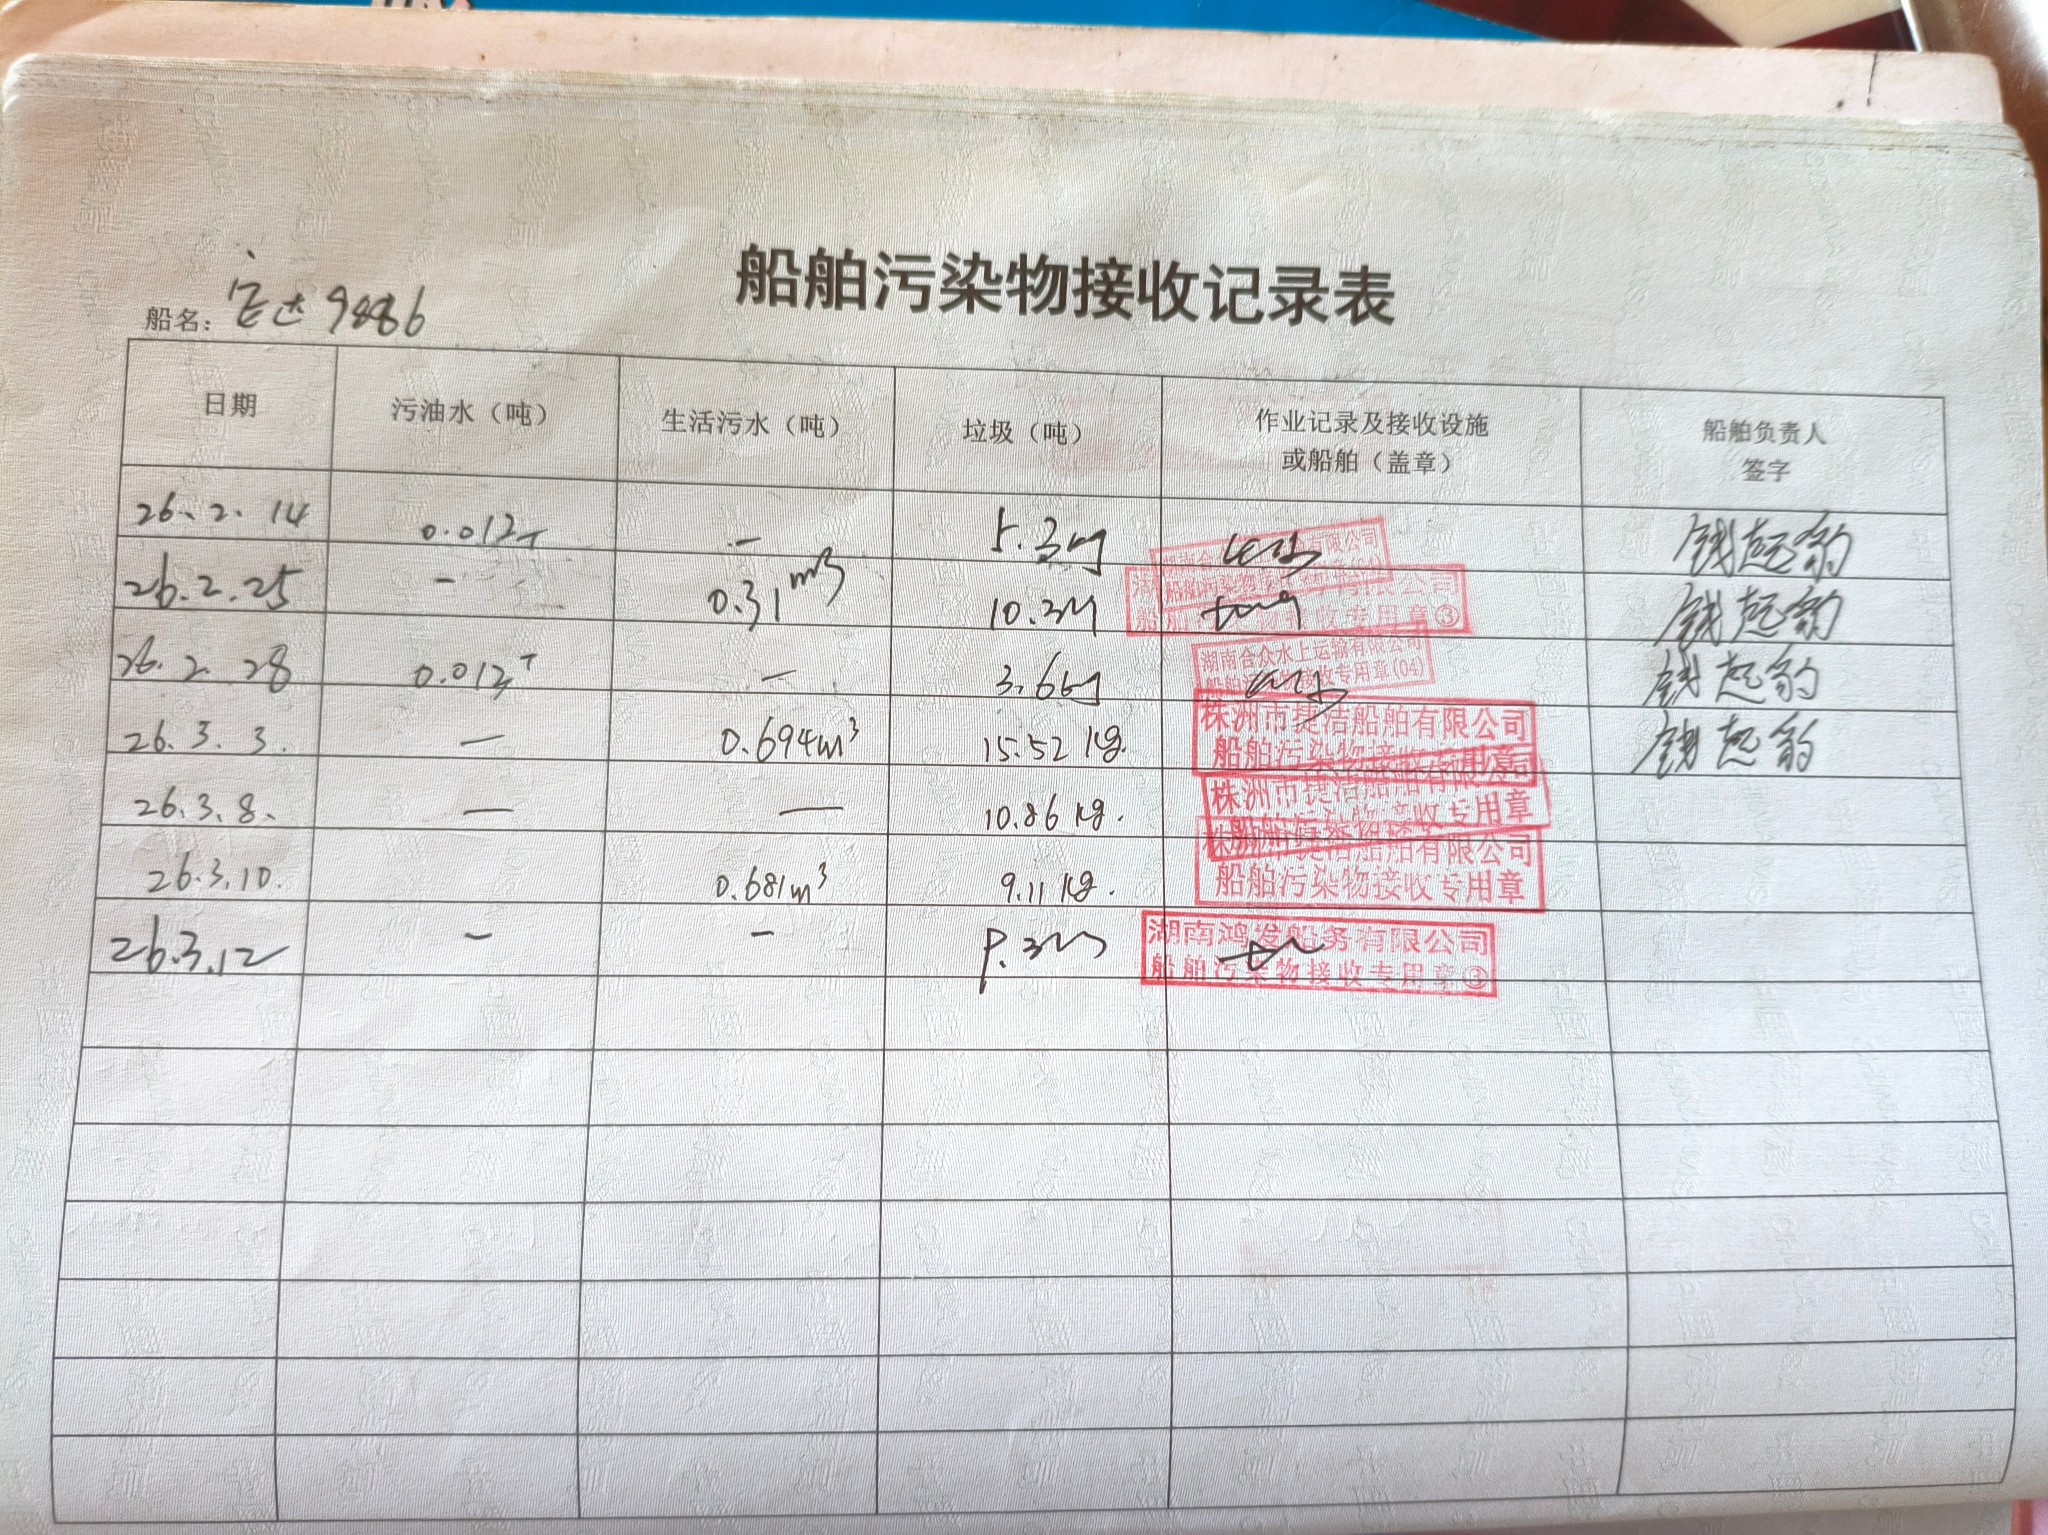 船舶污染物接收记录表
船名: 宏达9886
日期 污油水（吨） 生活污水（吨） 垃圾（吨） 作业记录及接收设施或船舶（盖章） 船舶负责人签字
26.2.14 0.012T — 5.3kg 钱起豹
26.2.25 — 0.31m³ 10.2kg 船舶污染物接收专用章③ 钱起豹
26.2.28 0.012T — 3.6kg 湖南合众水上运输有限公司 船舶污染物接收专用章(04) 钱起豹
26.3.3. — 0.694m³ 15.52kg. 株洲市捷洁船舶有限公司 船舶污染物接收专用章 钱起豹
26.3.8. — — 10.86kg. 株洲市捷洁船舶有限公司 船舶污染物接收专用章
26.3.10. 0.681m³ 9.11kg. 株洲市捷洁船舶有限公司 船舶污染物接收专用章
26.3.12 — — 湖南鸿发船务有限公司 船舶污染物接收专用章③